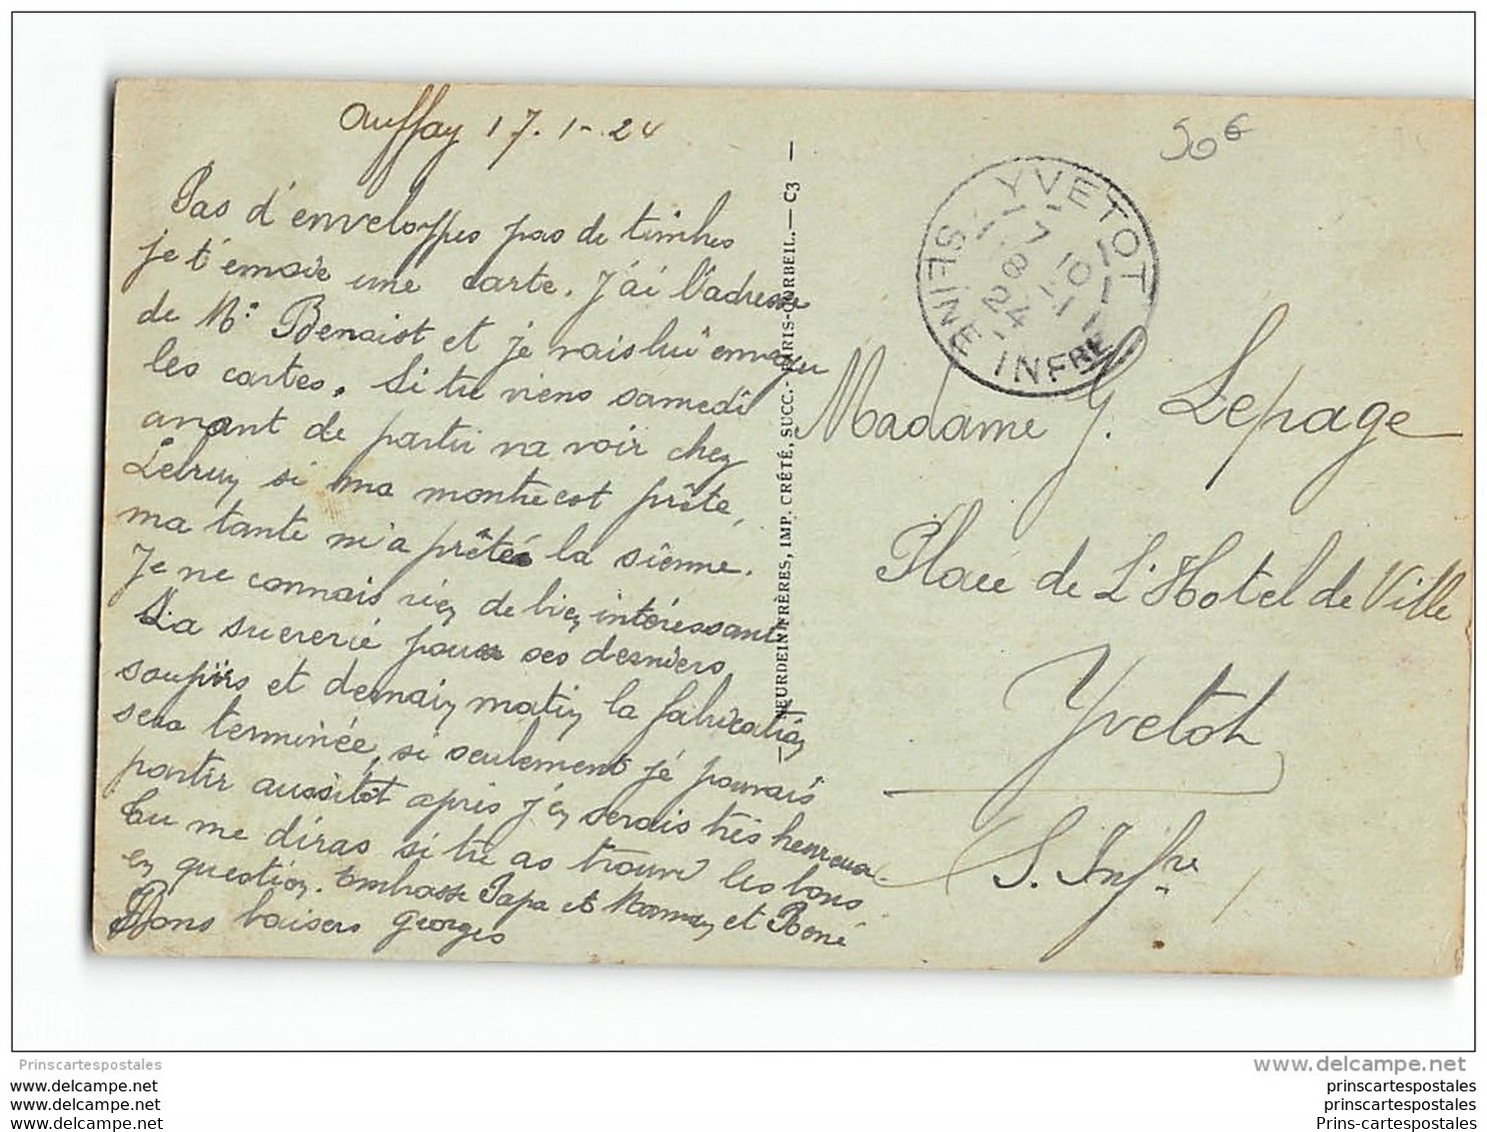 Auffay 17-1-24
Pas d'enveloppes pas de timbres
je t'envoie une carte. J'ai l'adresse
de Mr Benoist et je vais lui envoyer
les cartes. Si tu viens samedi
avant de partir va voir chez
si ma montre est prête,
ma tante m'a prêté la sienne.
Je ne connais rien de bien intéressant
La sucrerie pousse ses derniers
soupirs et demain matin la fabrication
sera terminée, si seulement je pouvais
partir aussitôt après j'en serais très heureux.
Tu me diras si tu as trouvé les bons
en question. Embrasse Papa et Maman et René
Bons baisers Georges
— NEURDEIN FRÈRES, IMP. CRÉTÉ, SUCC.- PARIS-CORBEIL.— C3 —
50€
YVETOT
SEINE INFRE
7 10
18 -1
24
Madame G. Lepage
Place de L'Hotel de Ville
Yvetot
S. Infre
Prinscartespostales
www.delcampe.net
www.delcampe.net
www.delcampe.net
www.delcampe.net
prinscartespostales
prinscartespostales
Prins-cartespostales